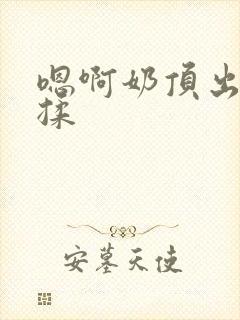 嗯啊奶頂出
揉
安墓天使